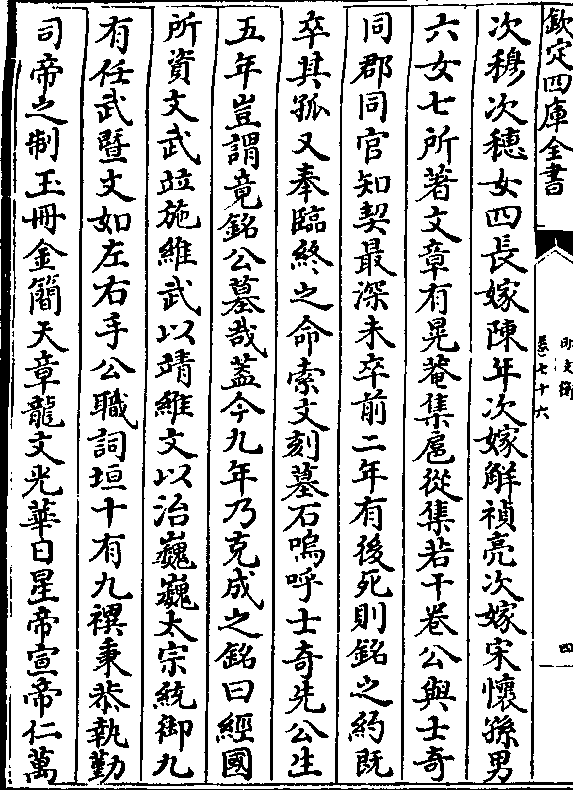 欽定四庫全書
明文衡
卷七十六
四
次穆次穗女四長嫁陳年次嫁解禎亮次嫁宋懷孫男
六女七所著文章有晃菴集扈從集若干卷公與士奇
同郡同官知契最深未卒前二年有後死則銘之約既
卒其孤又奉臨終之命索文刻墓石嗚呼士奇先公生
五年豈謂竟銘公墓哉葢今九年乃克成之銘曰經國
所資文武竝施維武以靖維文以治巍巍太宗統御九
有任武暨文如左右手公職詞垣十有九禩秉恭執勤
司帝之制玉冊金簡天章龍文光華日星帝宣帝仁萬